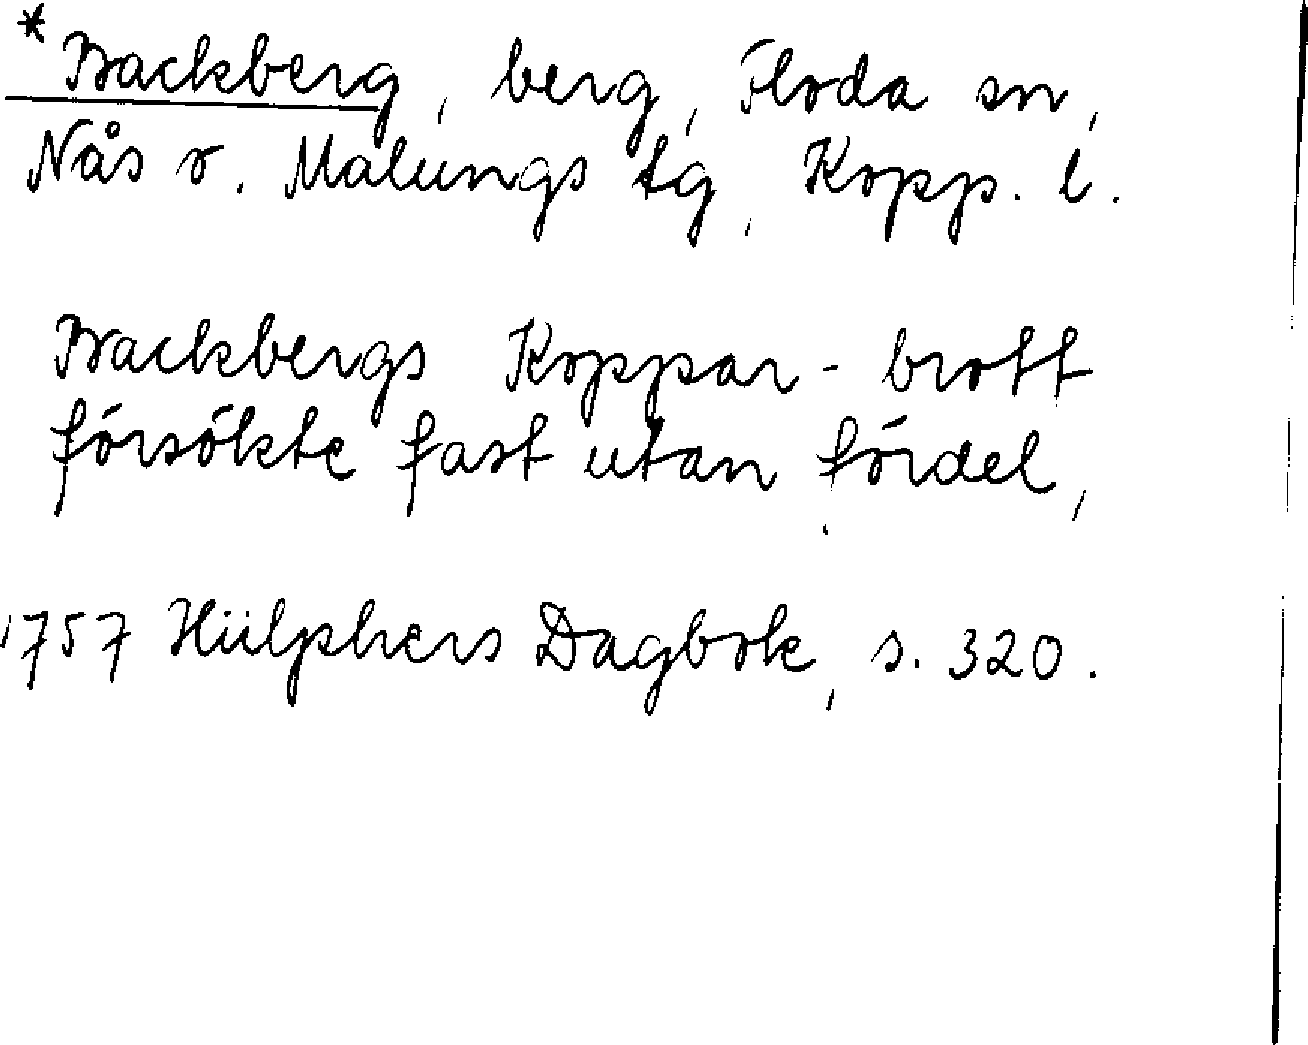 *Backberg, berg, Floda sn,
Nås o. Malungs tg, Kopp. l.
Backbergs Koppar-brott
försökte fast utan fördel,
1757 Hülphers Dagbok, s. 320.